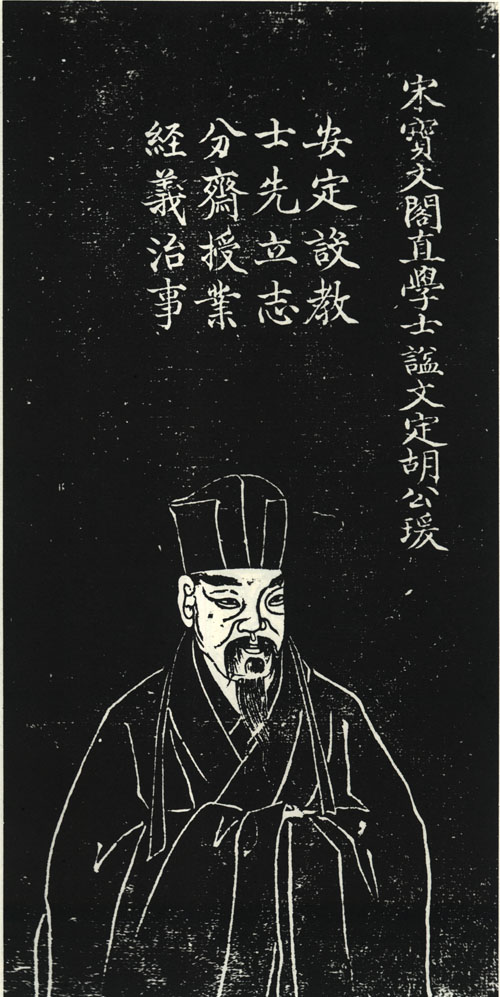 宋寶文閣直學士謚文定胡公瑗
安定設教
士先立志
分齋授業
経義治事